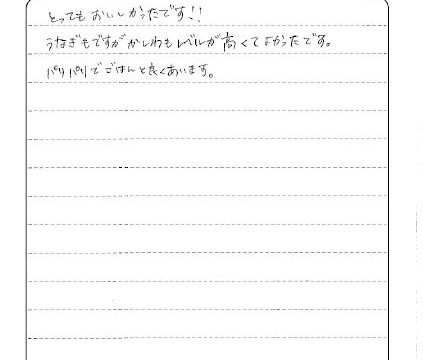 とってもおいしかったです!!
うなぎもですがかしわもレベルが高くてよかったです。
パリパリでごはんと良くあいます。